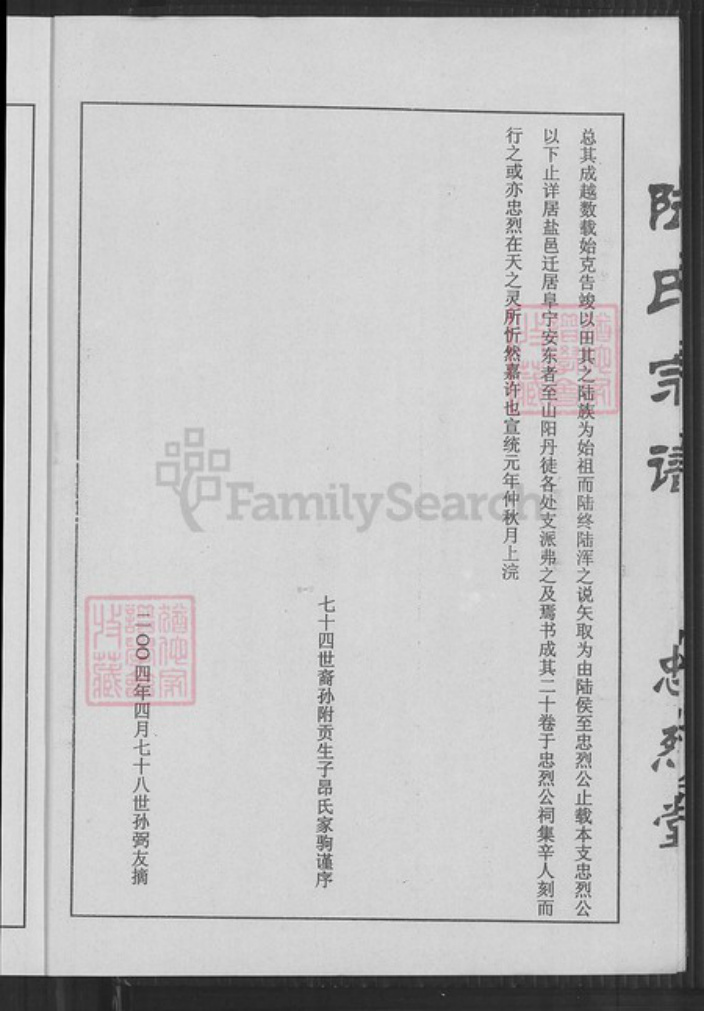 总其成越数载始克告竣以田其之陆族为始祖而陆终陆浑之说矢取为由陆侯至忠烈公止载本支忠烈公
以下止详居盐邑迁居阜宁安东者至山阳丹徒各处支派弗之及焉书成其二十卷于忠烈公祠集辛人刻而
行之或亦忠烈在天之灵所忻然嘉许也宣统元年仲秋月上浣
七十四世裔孙附贡生子昂氏家驹谨序
二〇〇四年四月七十八世孙弼友摘
陆氏宗谱
忠烈堂
FamilySearch